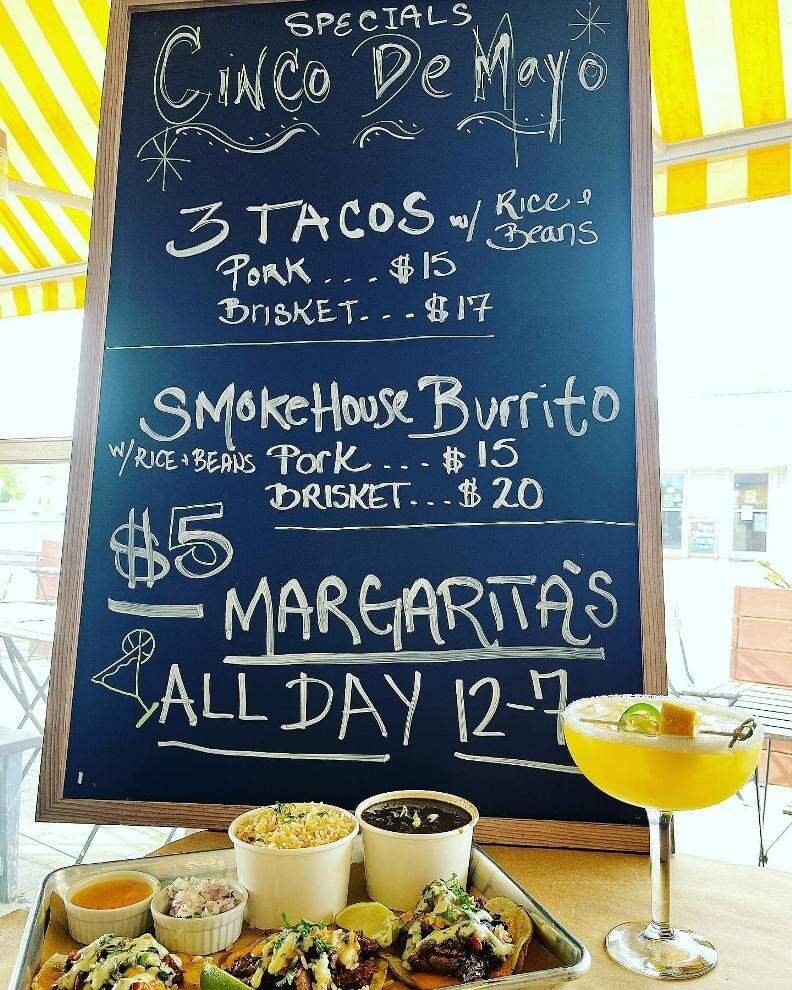 SPECIALS
Cinco De Mayo
3 TACOS w/ Rice +
Beans
PORK . . . . $15
BRISKET. . . $17
SMOKEHOUSE Burrito
w/RICE + BEANS Pork . . . $15
BRISKET. . . $20
$5
MARGARITA`S
ALL DAY 12-7